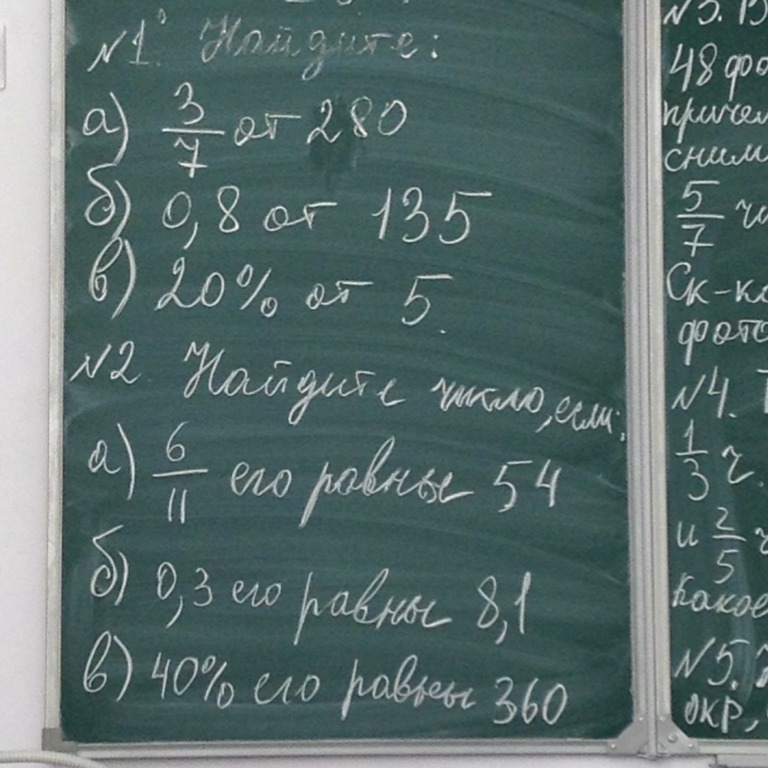 №1. Найдите:
а) 3/7 от 280
б) 0,8 от 135
в) 20% от 5.
№2 Найдите число, если:
а) 6/11 его равны 54
б) 0,3 его равны 8,1
в) 40% его равны 360
№3. В
48 фо
причем
сним
5/7 чи
Ск-ко
фото
№4.
1/3 ч.
и 2/5 ч
Какое
№5.
окр,